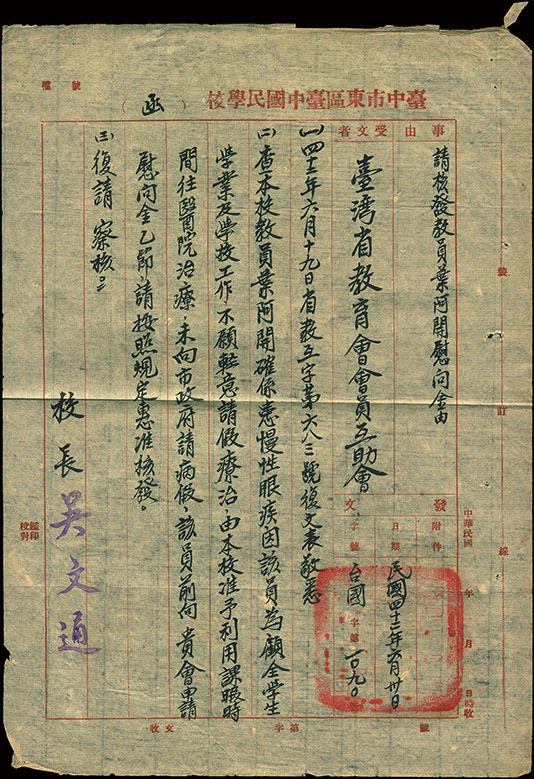 檔 號
臺中市東區臺中國民學校（函）
事由
請核發教員葉阿開慰問金由
受文者
臺湾省教育會會員互助會
發文
附件
日期
民國四十二年六月卅日
字號
台國字第一〇九〇
中華民國 年 月 日 時收
裝 訂 線
(一)四十二年六月十九日省教互字第六八三號復文表敬悉
(二)查本校教員葉阿開確係患慢性眼疾因該員為顧全學生
學業及學校工作，不願輕意請假療治，由本校准予利用課暇時
間往醫院治療，未向市政府請病假，該員前向 貴會申請
慰问金乙節，請按照規定惠准核發。
(三)復請 察核。
校長 吴文通
監印
校對
收文 字第 號